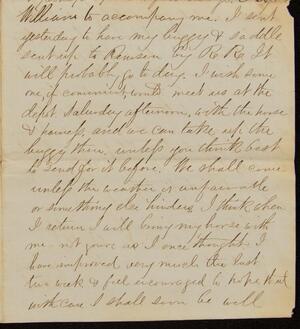 William to accompany me. I sent
yesterday to have my buggy & saddle
sent up to Rawson by R R. It
will probably go to day. I wish some
one, if convenient, would meet us at the
depot Saturday afternoon, with the horse
& harness, and we can take up the
buggy then, unless you think best
to send for it before. We shall come
unless the weather is unfavorable
or something else hinders. I think when
I return I will bring my horse with
me - not yours as I once thought. I
have improved very much the last
two weeks & feel encouraged to hope that
with care I shall soon be well